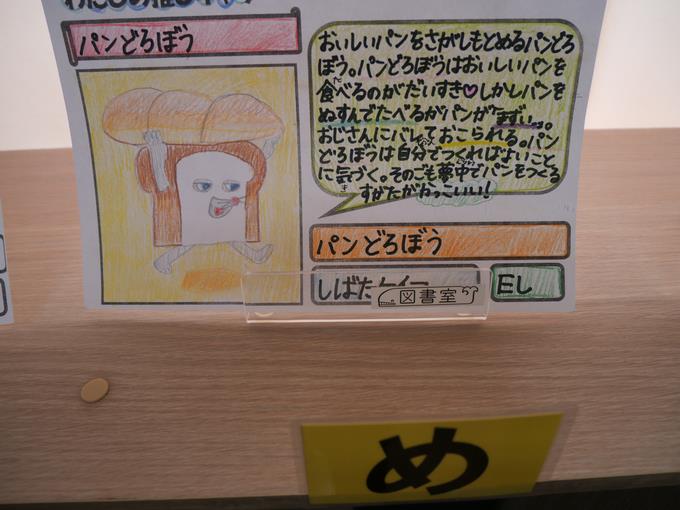 パンどろぼう
おいしいパンをさがしもとめるパンどろ
ぼう。パンどろぼうはおいしいパンを
食べるのがだいすき♡しかしパンを
ぬすんでたべるがパンが「まずい」。
おじさんにバレておこられる。パン
どろぼうは自分でつくればよいこと
に気づく。そのごも夢中でパンをつくる
すがたがかっこいい!
パンどろぼう
しばた
Eし
図書室
め